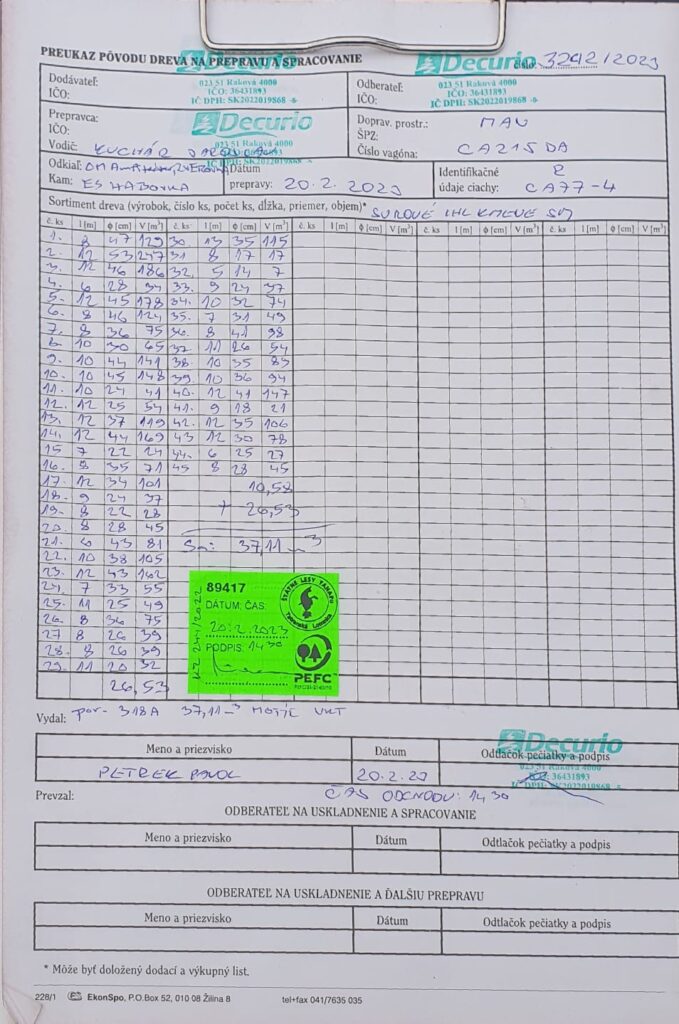 PREUKAZ PÔVODU DREVA NA PREPRAVU A SPRACOVANIE
Decurio
Decurio
číslo 3242/2023
Dodávateľ:
IČO:
023 51 Raková 4000
IČO: 36431893
IČ DPH: SK2022019868
Odberateľ:
IČO:
023 51 Raková 4000
IČO: 36431893
IČ DPH: SK2022019868
Prepravca:
Decurio
Vodič: KUCHÁR
023 51 Raková 4000
IČO: 36431893
Doprav. prostr.: MAN
ŠPZ:
Číslo vagóna: CA215DA
Odkiaľ:
Kam: ES HABOVKA
Dátum
prepravy: 20.2.2023
Identifikačné
údaje ciachy: CA77-4
Sortiment dreva (výrobok, číslo ks, počet ks, dĺžka, priemer, objem)* SUROVÉ IHL KMENE
č. ks l [m] ϕ [cm] V [m³] č. ks l [m] ϕ [cm] V [m³] č. ks l [m] ϕ [cm] V [m³] č. ks l [m] ϕ [cm] V [m³] č. ks l [m] ϕ [cm] V [m³]
1. 8 47 129 30. 13 35 115
2. 12 53 247 31. 8 17 17
3. 12 46 186 32. 5 14 7
4. 6 28 34 33. 9 24 37
5. 12 45 178 34. 10 32 74
6. 8 46 124 35. 7 31 49
7. 8 36 75 36. 8 41 98
8. 10 30 65 37. 11 26 54
9. 10 44 141 38. 10 35 89
10. 10 45 148 39. 10 36 94
11. 10 24 41 40. 12 41 147
12. 12 25 54 41. 9 18 21
13. 12 37 119 42. 12 35 106
14. 12 44 169 43 12 30 78
15 7 22 24 44. 6 25 27
16. 8 35 71 45 8 28 45
17. 12 34 101 10,58
18. 9 24 37
19. 8 22 28 + 26,53
20. 8 28 45
21. 6 43 81 Sm: 37,11 m³
22. 10 38 105
23. 12 43 162
24. 7 33 55
25. 11 25 49
26. 8 36 75
27 8 26 39
28. 8 26 39
29. 11 20 32
26,53
89417
DÁTUM, ČAS:
20.2.2023
PODPIS: 1430
ŠTÁTNE LESY TANAPU
Tatranská Lomnica
PEFC
Vydal: por- 318A 37,11 m³
Meno a priezvisko Dátum Odtlačok pečiatky a podpis
PETREK PAVOL 20.2.23
Decurio
023 51 Raková 4000
IČO: 36431893
IČ DPH: SK2022019868
Prevzal: ČAS ODCHODU: 1430
ODBERATEĽ NA USKLADNENIE A SPRACOVANIE
Meno a priezvisko Dátum Odtlačok pečiatky a podpis
ODBERATEĽ NA USKLADNENIE A ĎALŠIU PREPRAVU
Meno a priezvisko Dátum Odtlačok pečiatky a podpis
* Môže byť doložený dodací a výkupný list.
228/1 EkonSpo, P.O.Box 52, 010 08 Žilina 8 tel+fax 041/7635 035